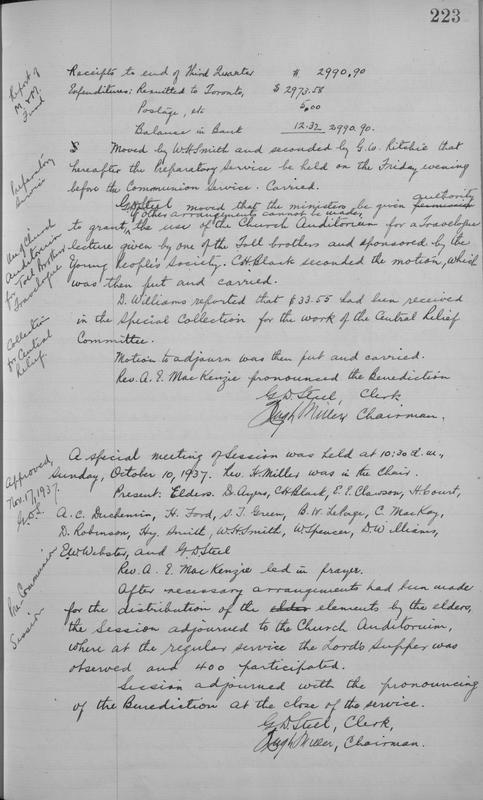 223
Report of
M & M.
Fund
Receipts to end of Third Quarter $ 2990.90
Expenditures: Remitted to Toronto, $ 2973.58
Postage, etc 5.00
Balance in Bank 12.32 2990.90.
Preparatory
Service
Moved by W.H. Smith and seconded by G.W. Ritchie that
hereafter the Preparatory Service be held on the Friday evening
before the Communion Service. Carried.
Use of Church
Auditorium
for Toll Brothers
Travelogue
G.D. Steel moved that the ministers be given authority
if other arrangements cannot be made,
to grant, the use of the Church Auditorium for a Travelogue
lecture given by one of the Toll brothers and sponsored by the
Young People's Society. C.H. Black seconded the motion, which
was then put and carried.
Collection
for Central
Relief.
D. Williams reported that $33.55 had been received
in the Special Collection for the work of the Central Relief
Committee.
Motion to adjourn was then put and carried.
Rev. A. E. MacKenzie pronounced the Benediction
G.D. Steel, Clerk.
Hugh Miller, Chairman.
Approved,
Nov. 17, 1937.
G.D.S.
A special meeting of Session was held at 10:30 a.m.,
Sunday, October 10, 1937. Rev. H. Miller was in the Chair.
Present: Elders. D. Ayers, C.H. Black, E.E. Clawson, H. Court,
A.C. Duchemin, H. Ford, S.J. Green, B.W. LePage, C. MacKay,
D. Robinson, Hy. Smith, W.H. Smith, W. Spencer, D. Williams,
E.W. Webster, and G.D. Steel
Pre Communion
Session
Rev. A. E. MacKenzie led in prayer.
After necessary arrangements had been made
for the distribution of the elements by the elders,
the Session adjourned to the Church Auditorium,
where at the regular service the Lord's Supper was
observed and 400 participated.
Session adjourned with the pronouncing
of the Benediction at the close of the service.
G.D. Steel, Clerk,
Hugh Miller, Chairman.